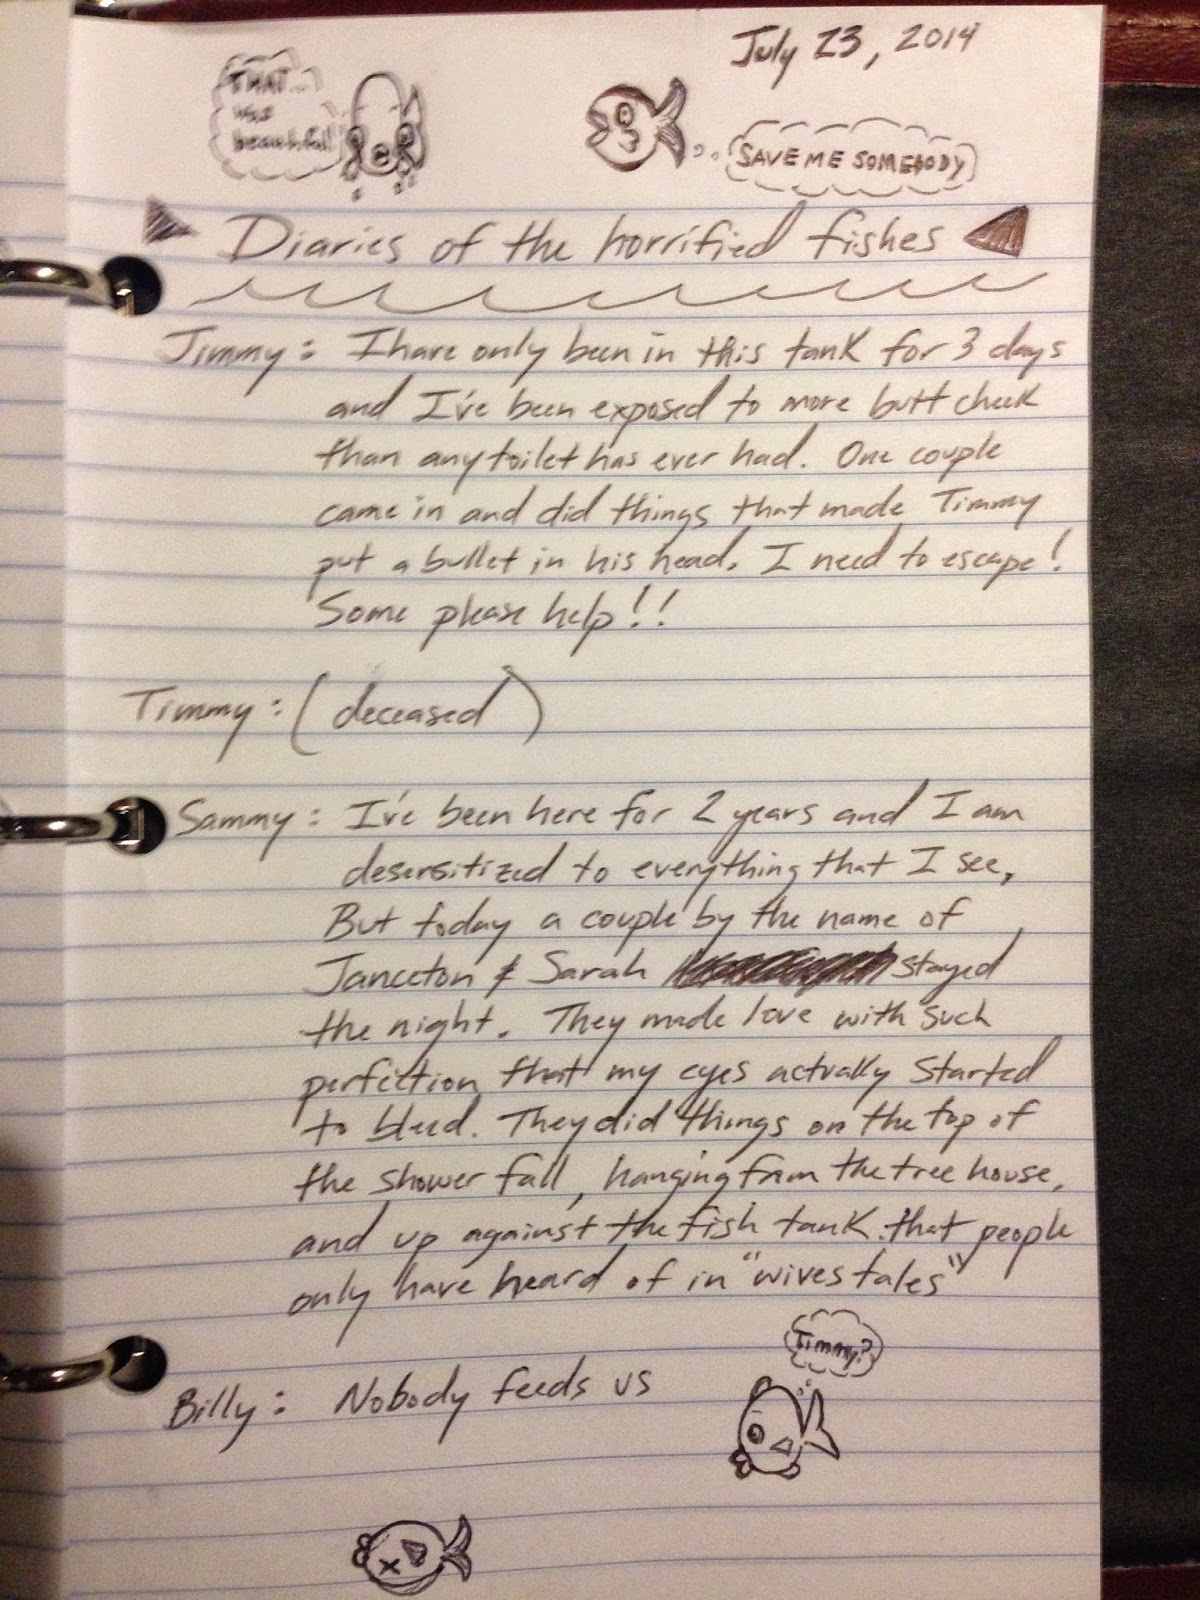 July 23, 2014
THAT...
was
beautiful
SAVE ME SOMEBODY
Diaries of the horrified fishes
Jimmy: I have only been in this tank for 3 days
and I've been exposed to more butt cheek
than any toilet has ever had. One couple
came in and did things that made Timmy
put a bullet in his head. I need to escape!
Some please help!!
Timmy: (deceased)
Sammy: I've been here for 2 years and I am
desensitized to everything that I see,
But today a couple by the name of
Janceton & Sarah stayed
the night. They made love with such
perfection that my eyes actually started
to bleed. They did things on the top of
the shower fall, hanging from the tree house,
and up against the fish tank that people
only have heard of in "wives tales"
Timmy?
Billy: Nobody feeds us